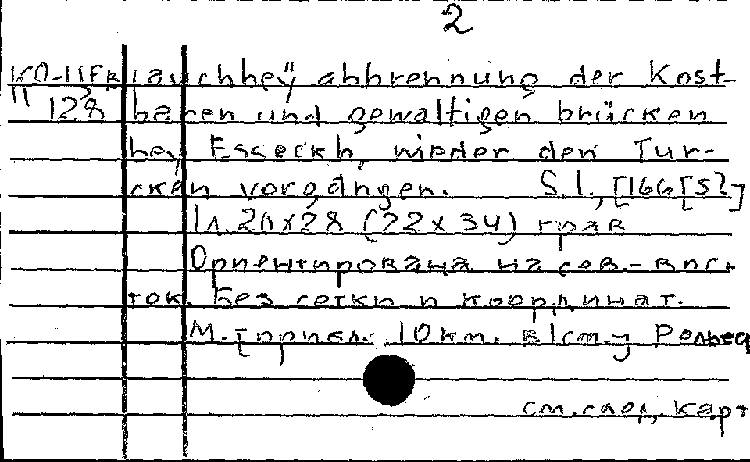 2
auchheÿ abbrennung der Kost-
128 baren und gewaltigen brücken
beÿ Esseckh, wieder den Tur-
cken vorgangen. S.l., [166[5?]
1л. 20x28 (22x34) грав
Ориентирована на сев.-вос-
ток. Без сетки и координат.
М. [ориел. 10km. в 1cm.] Рельеф
см. след. карт